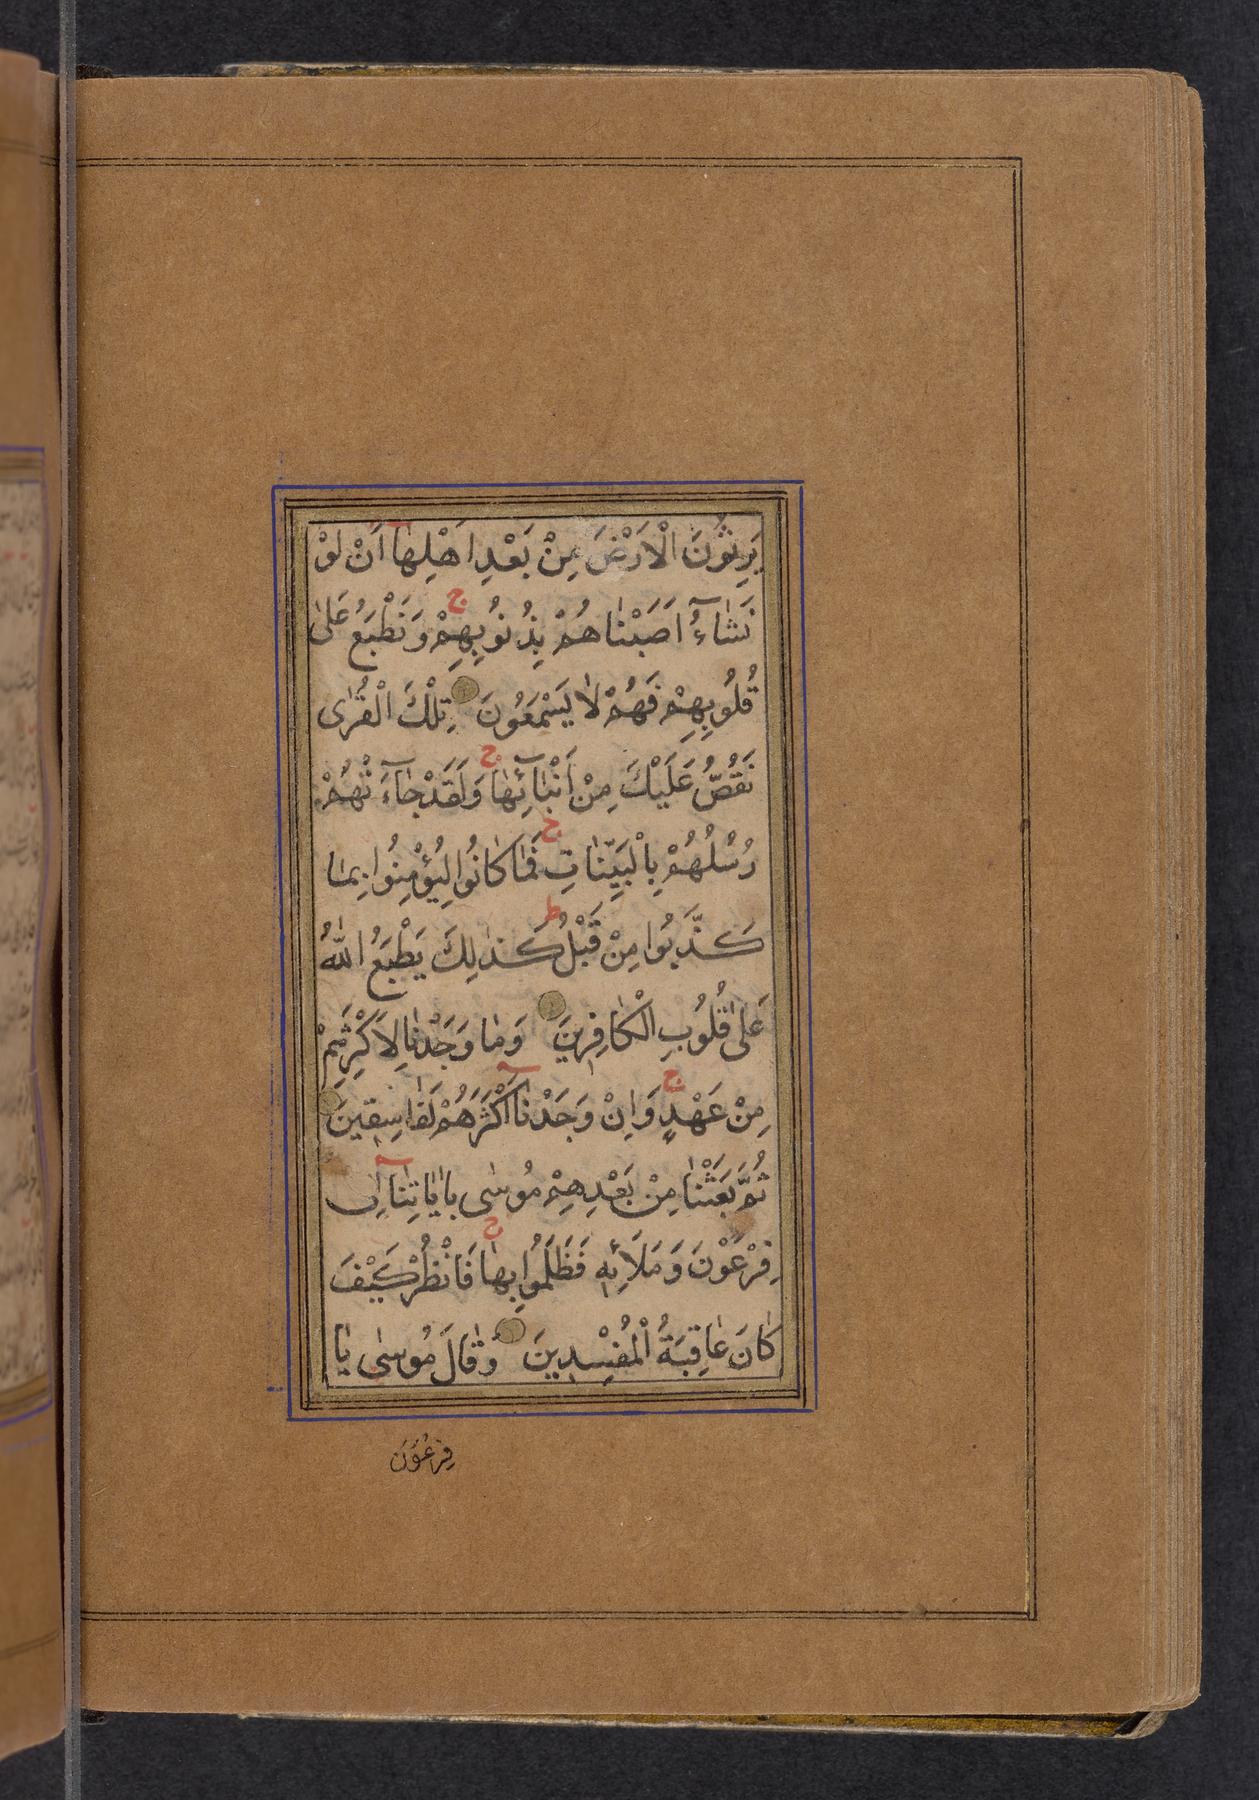 يَرِثُونَ الْاَرْضَ مِنْ بَعْدِ اَهْلِهٰٓا اَنْ لَوْ
نَشٰٓاءُ اَصَبْنٰاهُمْ بِذُنُوبِهِمْ ج وَنَطْبَعُ عَلىٰ
قُلُوبِهِمْ فَهُمْ لٰا يَسْمَعُونَ تِلْكَ الْقُرٰى
نَقُصُّ عَلَيْكَ مِنْ اَنْبٰٓائِهٰا ج وَلَقَدْ جٰٓاءَتْهُمْ
رُسُلُهُمْ بِالْبَيِّنٰاتِ ج فَمٰا كٰانُوا لِيُؤْمِنُوا بِمٰا
كَذَّبُوا مِنْ قَبْلُ ط كَذٰلِكَ يَطْبَعُ اللّٰهُ
عَلىٰ قُلُوبِ الْكٰافِرِينَ وَمٰا وَجَدْنٰا لِاَكْثَرِهِمْ
مِنْ عَهْدٍ ج وَاِنْ وَجَدْنٰٓا اَكْثَرَهُمْ لَفٰاسِقِينَ
ثُمَّ بَعَثْنٰا مِنْ بَعْدِهِمْ مُوسٰى بِاٰيٰاتِنٰٓا اِلٰى
فِرْعَوْنَ وَمَلَائِهِ فَظَلَمُوا بِهٰا ج فَانْظُرْ كَيْفَ
كٰانَ عٰاقِبَةُ الْمُفْسِدِينَ وَقٰالَ مُوسٰى يٰا
فِرْعَوْنَ